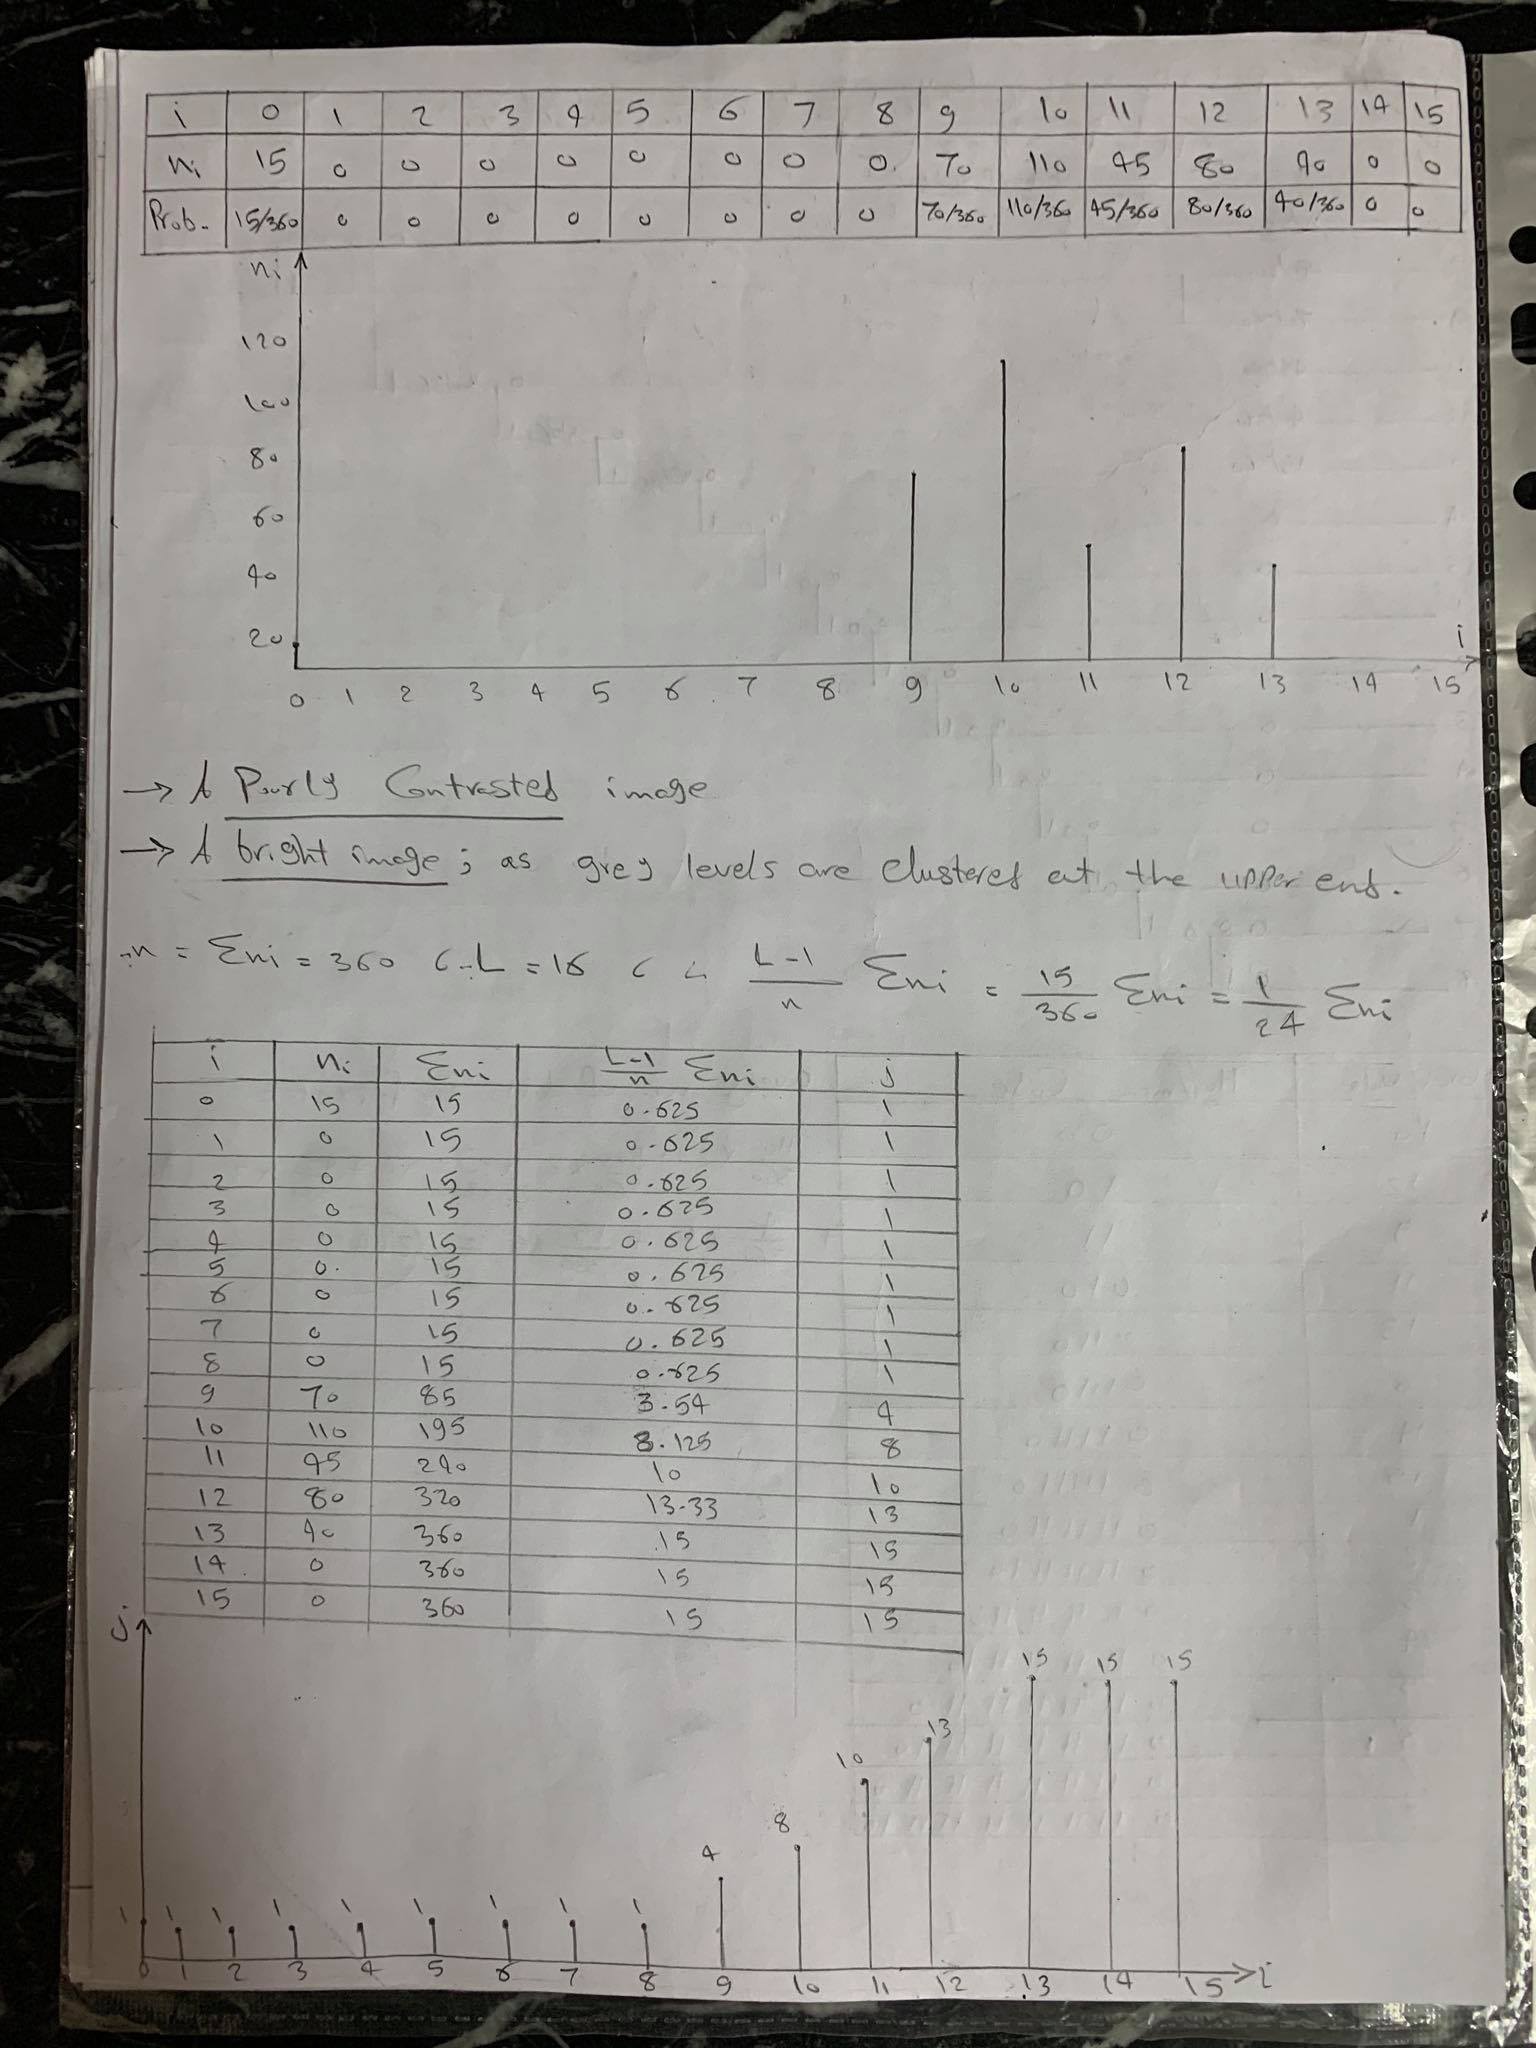 i 0 1 2 3 4 5 6 7 8 9 10 11 12 13 14 15
ni 15 0 0 0 0 0 0 0 0. 70 110 45 80 40 0 0
Prob. 15/360 0 0 0 0 0 0 0 0 70/360 110/360 45/360 80/360 40/360 0 0
ni
120
100
80
60
40
20
i
0 1 2 3 4 5 6 7 8 9 10 11 12 13 14 15
→ A Poorly Contrasted image
→ A bright image ; as grey levels are clustered at the upper end.
n = Σni = 360 L = 16 L-1/n Σni = 15/360 Σni = 1/24 Σni
i ni Σni L-1/n Σni j
0 15 15 0.625 1
1 0 15 0.625 1
2 0 15 0.625 1
3 0 15 0.625 1
4 0 15 0.625 1
5 0. 15 0.625 1
6 0 15 0.625 1
7 0 15 0.625 1
8 0 15 0.625 1
9 70 85 3.54 4
10 110 195 8.125 8
11 45 240 10 10
12 80 320 13.33 13
13 40 360 15 15
14 0 360 15 15
15 0 360 15 15
j
15 15 15
13
10
8
4
1 1 1 1 1 1 1 1 1
0 1 2 3 4 5 6 7 8 9 10 11 12 13 14 15 i